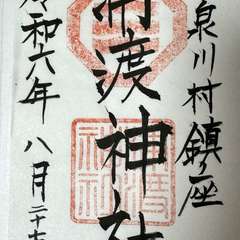 泉川村鎮座
渡神社
令和六年八月二十